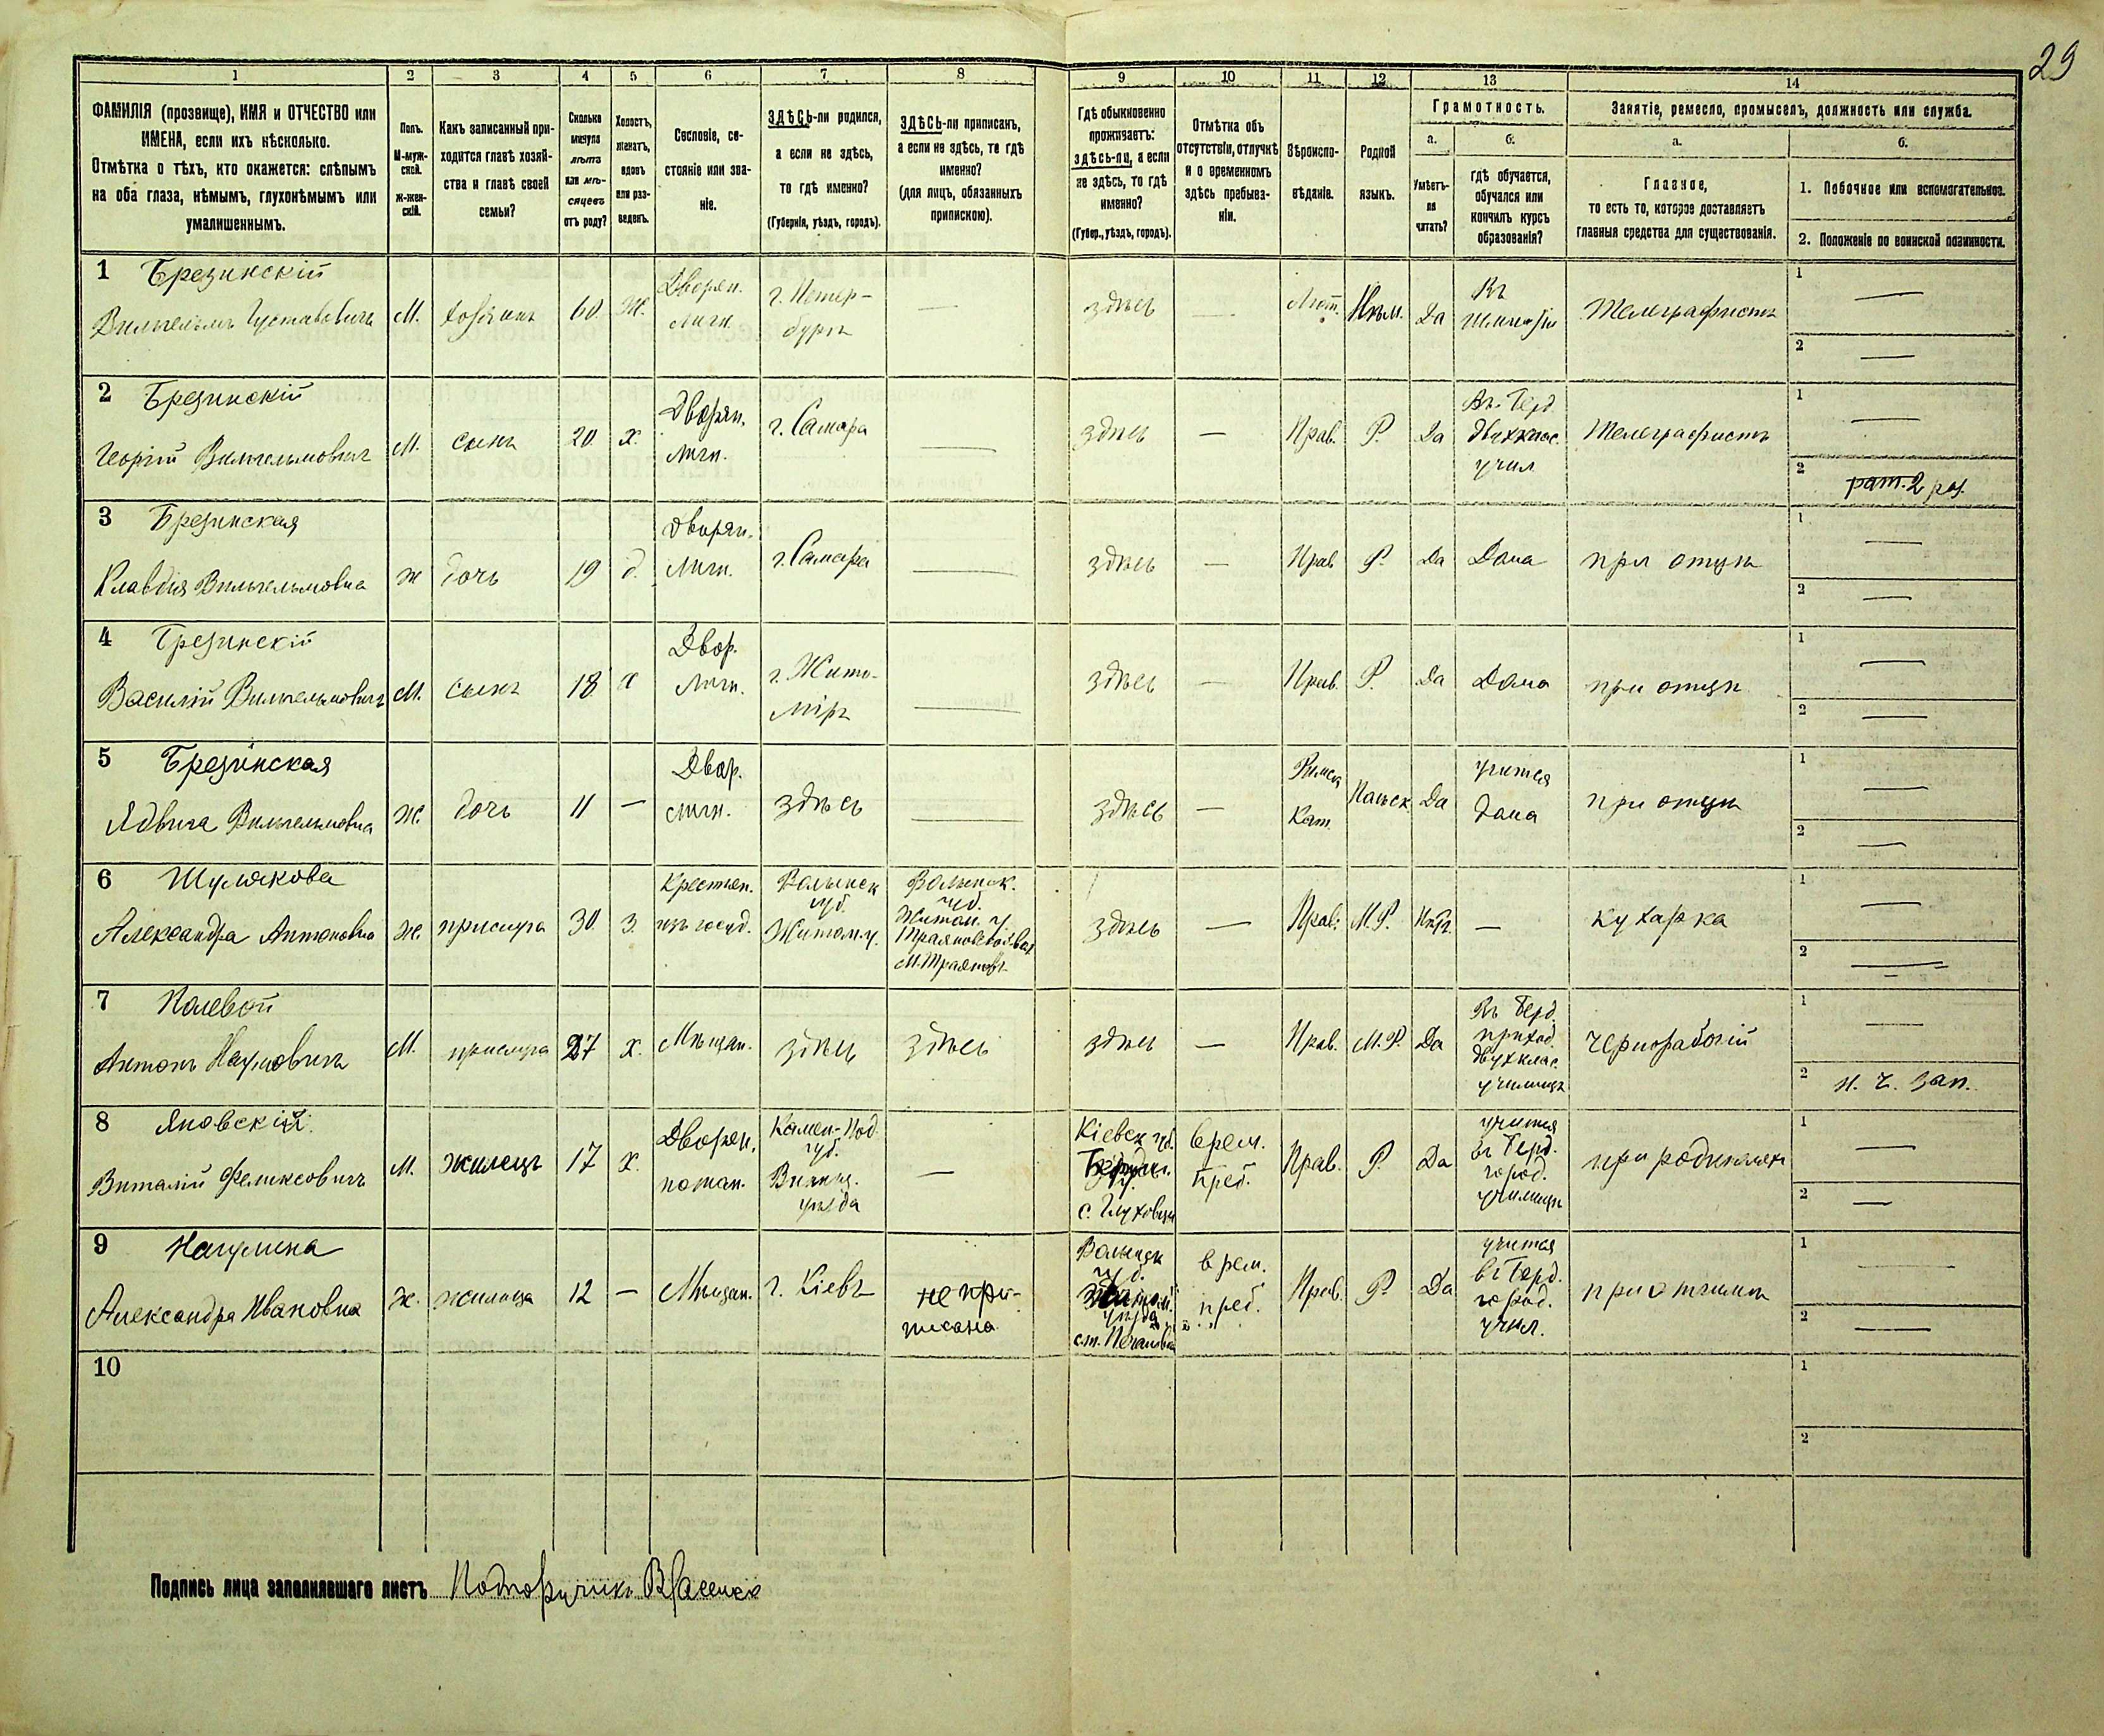 29
1 2 3 4 5 6 7 8 9 10 11 12 13 14
ФАМИЛІЯ (прозвище), ИМЯ и ОТЧЕСТВО или
ИМЕНА, если ихъ нѣсколько.
Отмѣтка о тѣхъ, кто окажется: слѣпымъ
на оба глаза, нѣмымъ, глухонѣмымъ или
умалишеннымъ.
Полъ.
М-муж-
ской.
ж-жен-
скій.
Какъ записанный при-
ходится главѣ хозяй-
ства и главѣ своей
семьи?
Сколько
минуло
лѣтъ
или мѣ-
сяцевъ
отъ роду?
Холостъ,
женатъ,
вдовъ
или раз-
веденъ.
Сословіе, со-
стояніе или зва-
ніе.
ЗДѢСЬ-ли родился,
а если не здѣсь,
то гдѣ именно?
(Губернія, уѣздъ, городъ).
ЗДѢСЬ-ли приписанъ,
а если не здѣсь, то гдѣ
именно?
(для лицъ, обязанныхъ
припискою).
Гдѣ обыкновенно
проживаетъ:
здѣсь-ли, а если
не здѣсь, то гдѣ
именно?
(Губер., уѣздъ, городъ).
Отмѣтка объ
отсутствіи, отлучкѣ
и о временномъ
здѣсь пребыва-
ніи.
Вѣроиспо-
вѣданіе.
Родной
языкъ.
Грамотность.
а.
Умѣетъ-
ли
читать?
б.
гдѣ обучается,
обучался или
кончилъ курсъ
образованія?
Занятіе, ремесло, промыселъ, должность или служба.
а.
Главное,
то есть то, которое доставляетъ
главныя средства для существованія.
б.
1. Побочное или вспомогательное.
2. Положеніе по воинской повинности.
1 Брезинскій
Вильгельмъ Густавовичъ М. хозяинъ 60 Ж. Дворян. личн. г. Петер-
бургъ — здѣсь — Лют. Нѣм. Да Въ Телеграфистъ 1 —
2 —
2 Брезинскій
Георгій Вильгельмовичъ М. сынъ 20 х. Дворян. личн. г. Самара — здѣсь — Прав. Р. Да Въ Берд.
двухклас.
учил Телеграфистъ 1 —
2 рат. 2 раз.
3 Брезинская
Клавдія Вильгельмовна ж дочь 19 д. Дворян. Личн. г. Самара — здѣсь — Прав. Р. Да Дома при отцѣ 1 —
2 —
4 Брезинскій
Василій Вильгельмовичъ М. сынъ 18 х Двор. Личн. г. Жито-
міръ — здѣсь — Прав. Р. Да Дома при отцѣ 1 —
2 —
5 Брезинская
Ядвига Вильгельмовна Ж. дочь 11 — Двор. личн. здѣсь — здѣсь — Римск Кат. Польск. Да учится
дома при отцѣ 1 —
2 —
6 Шулякова
Александра Антоновна Ж. прислуга 30 з. Крестьян.
изъ госуд. Волынск
губ.
Житом. у. Волынск.
губ.
Житом. у здѣсь — Прав. М.Р. Нѣтъ — кухарка 1 —
2 —
7 Полевой
Антонъ Наумовичъ М. прислуга 27 х. Мѣщан. здѣсь здѣсь здѣсь — Прав. М.Р. Да Въ Берд.
приход.
двухклас.
училищѣ чернорабочій 1 —
2 н. ч. зап.
8 Яновскій
Виталій Феликсовичъ М. жилецъ 17 х. Дворян.
потом. Камен-Под.
губ.
Винниц.
уѣзда — Кіевск губ.
с. Глуховцы врем.
преб. Прав. Р. Да учится
въ Берд.
город.
училищѣ при родителяхъ 1 —
2 —
9 Нагулина
Александра Ивановна ж. жилица 12 — Мѣщан. г. Кіевъ не при-
писана Волынск
губ.
уѣзда врем.
преб. Прав. Р. Да учится
въ Берд.
город.
учил. при отчимѣ 1 —
2 —
10 1
2
Подпись лица заполнявшаго листъ Подпоручикъ